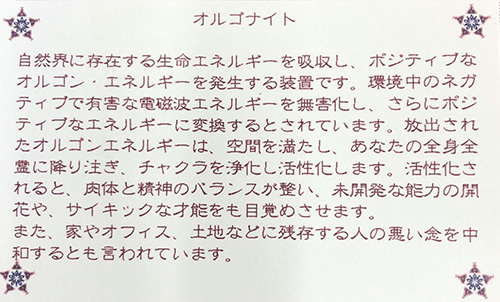 オルゴナイト
自然界に存在する生命エネルギーを吸収し、ポジティブな
オルゴン・エネルギーを発生する装置です。環境中のネガ
ティブで有害な電磁波エネルギーを無害化し、さらにポジ
ティブなエネルギーに変換するとされています。放出され
たオルゴンエネルギーは、空間を満たし、あなたの全身全
霊に降り注ぎ、チャクラを浄化し活性化します。活性化さ
れると、肉体と精神のバランスが整い、未開発な能力の開
花や、サイキックな才能をも目覚めさせます。
また、家やオフィス、土地などに残存する人の悪い念を中
和するとも言われています。